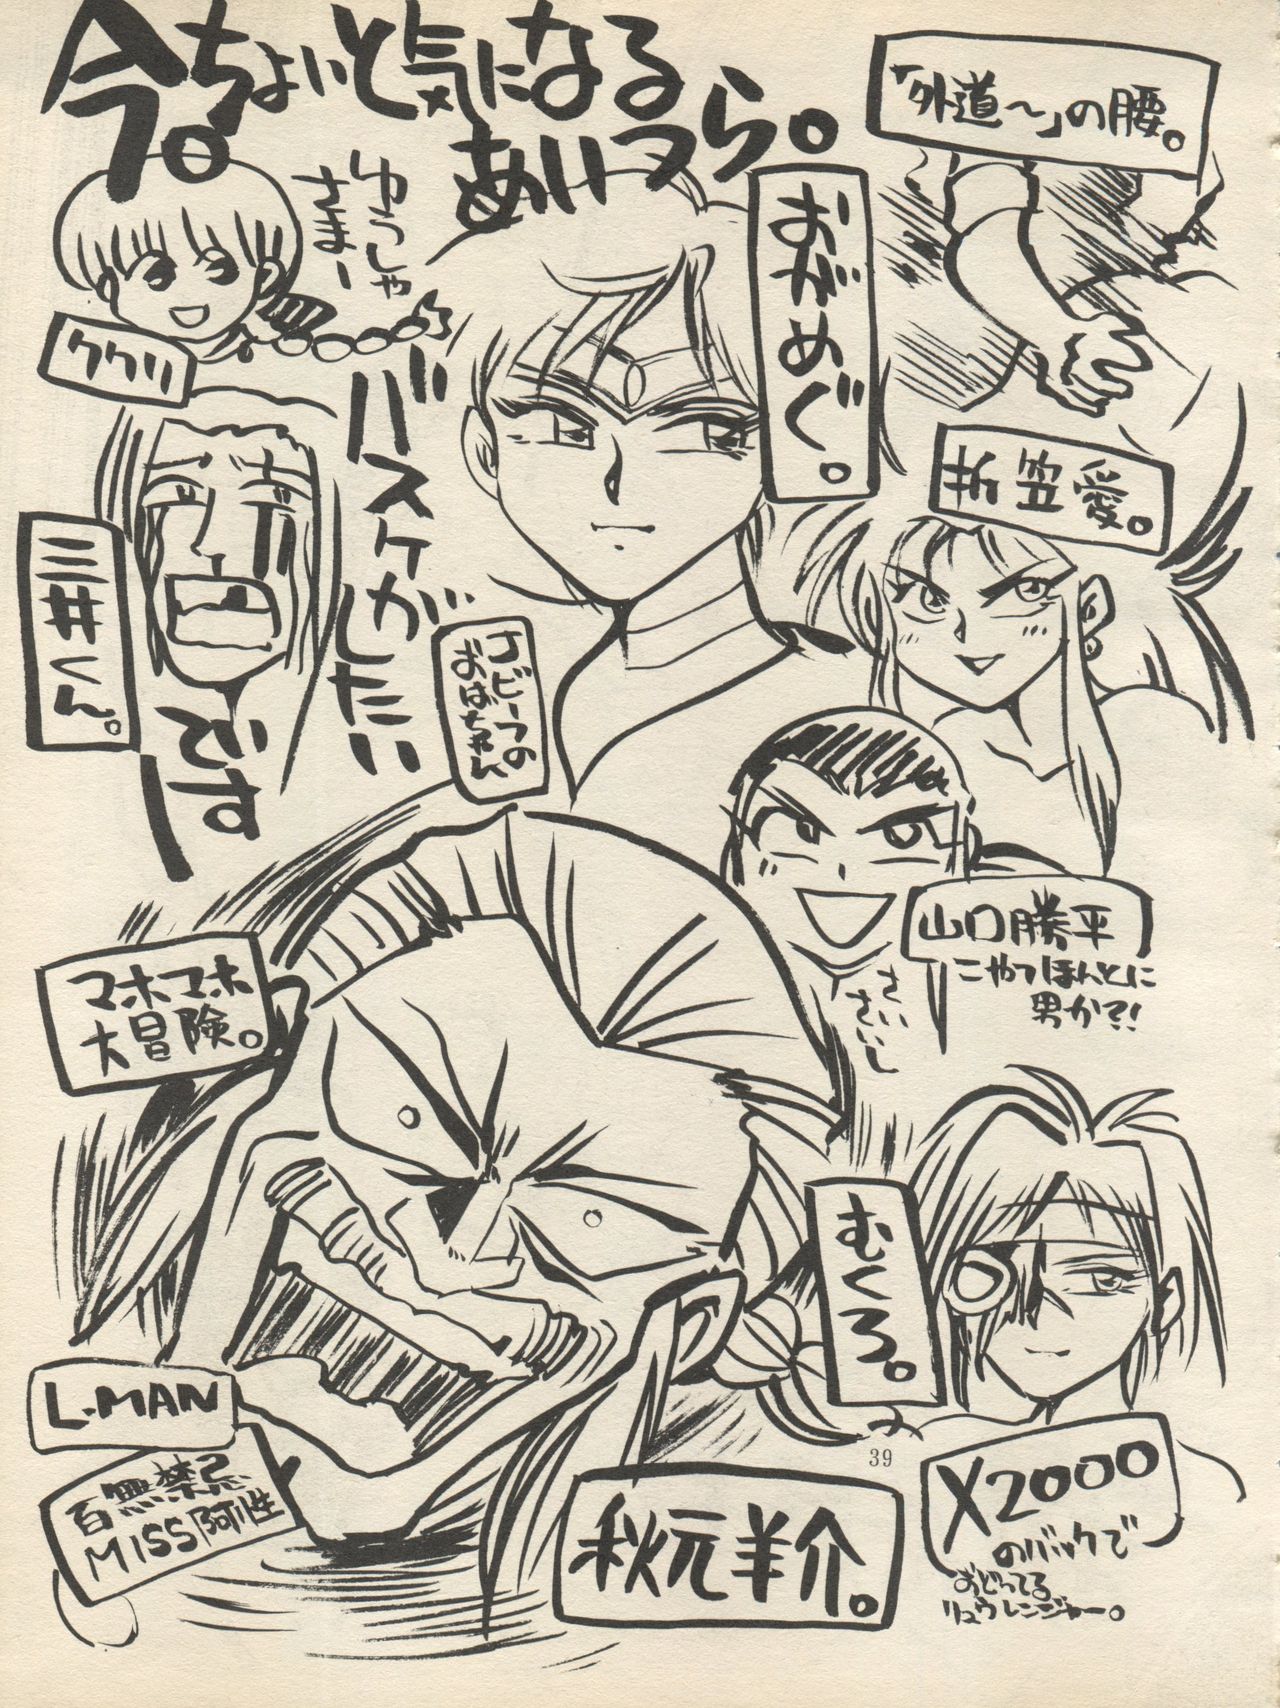 今。ちょいと気になる
あいつら。
「外道〜」の腰。
おがめぐ。
ゆうしゃ
さまー
ククリ
折笠愛。
バスケがしたい
です
三井くん。
Jビーフの
おばちゃん
山口勝平
こやつほんとに
男か?!
さい
さいし
マホマホ
大冒険。
むくろ。
L・MAN
百無禁忌
MISS阿性
秋元羊介。
X2000
のバックで
おどってる
リュウレンジャー。
39